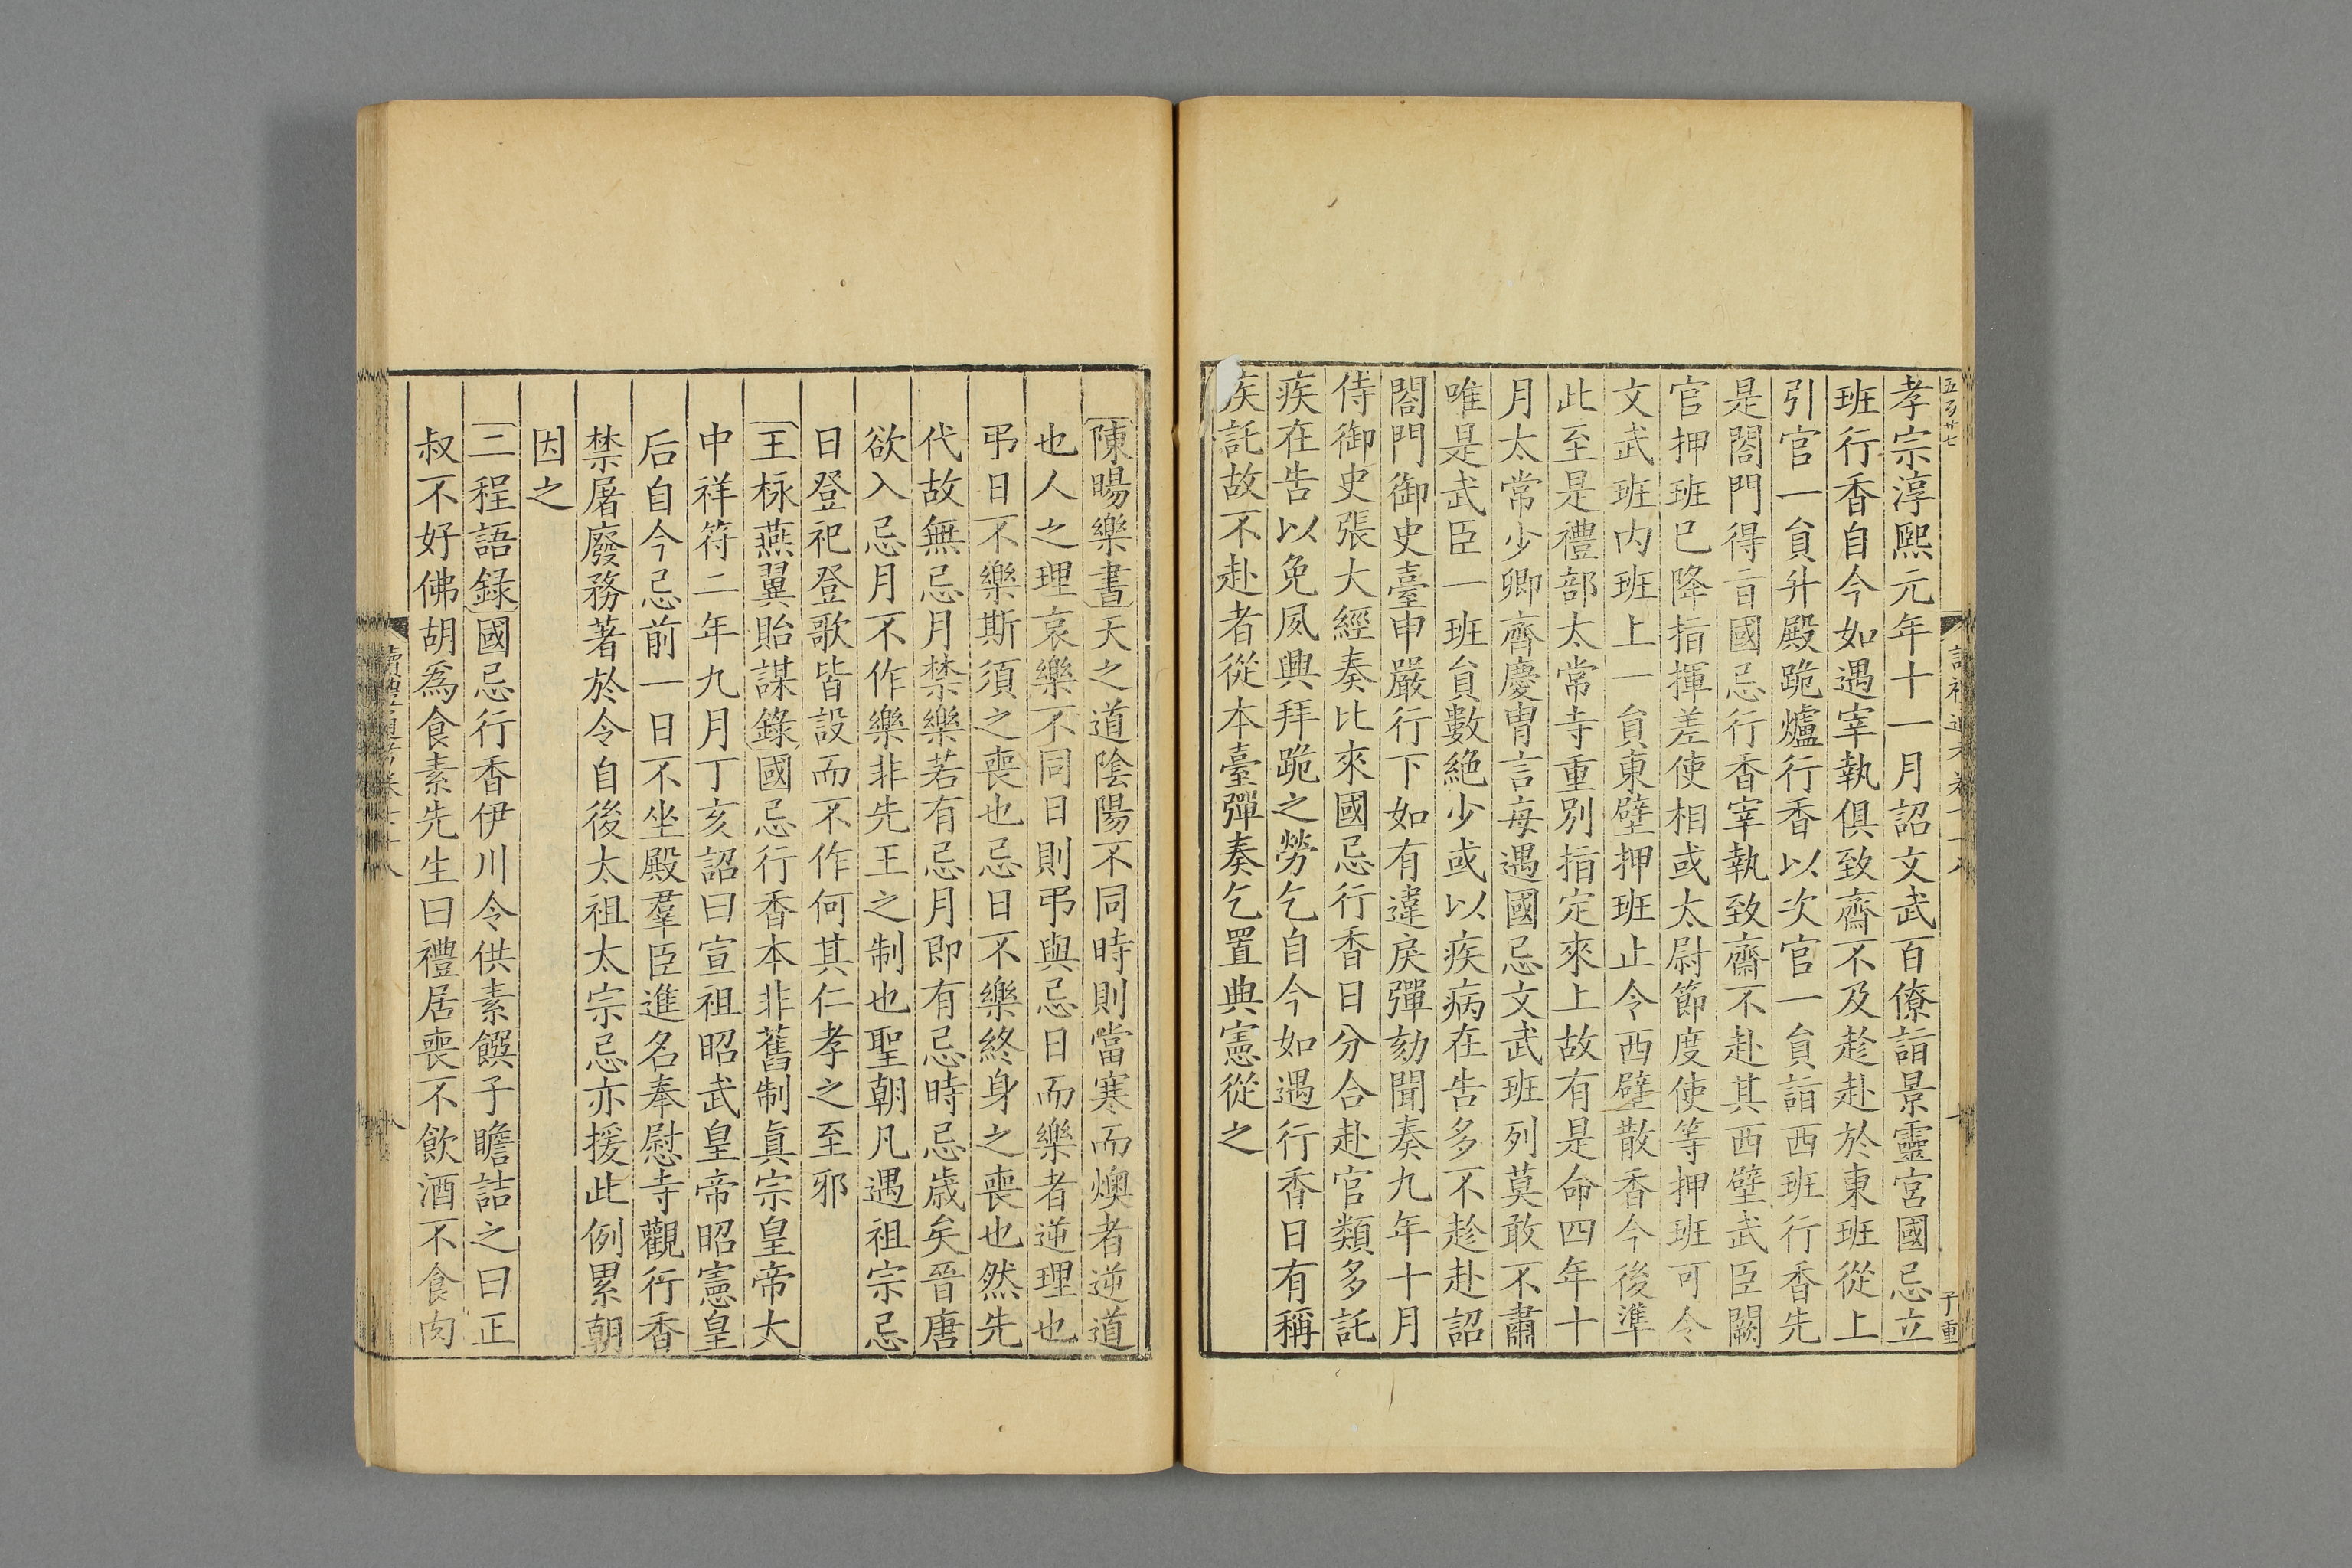 孝宗淳熙元年十一月詔文武百僚詣景靈宮國忌立
班行香自今如遇宰執俱致齋不及趁赴於東班從上
引官一貟升殿跪爐行香以次官一貟詣西班行香先
是閤門得旨國忌行香宰執致齋不赴其西壁武臣闕
官押班已降指揮差使相或太尉節度使等押班可令
文武班内班上一貟東壁押班止令西壁散香今後準
此至是禮部太常寺重别指定來上故有是命四年十
月太常少卿齊慶冑言毎遇國忌文武班列莫敢不肅
唯是武臣一班貟數絶少或以疾病在告多不趁赴詔
閤門御史臺申嚴行下如有違戾彈劾聞奏九年十月
侍御史張大經奏比來國忌行香日分合赴官類多託
疾在告以免夙興拜跪之勞乞自今如遇行香日有稱
疾託故不赴者從本臺彈奏乞置典憲從之
陳暘樂書天之道陰陽不同時則當寒而燠者逆道
也人之理哀樂不同日則弔與忌日而樂者逆理也
弔日不樂斯須之喪也忌日不樂終身之喪也然先
代故無忌月禁樂若有忌月即有忌時忌歳矣晉唐
欲入忌月不作樂非先王之制也聖朝凡遇祖宗忌
日登祀登歌皆設而不作何其仁孝之至邪
王栐燕翼貽謀錄國忌行香本非舊制眞宗皇帝大
中祥符二年九月丁亥詔曰宣祖昭武皇帝昭憲皇
后自今忌前一日不坐殿羣臣進名奉慰寺觀行香
禁屠廢務著於令自後太祖太宗忌亦援此例累朝
因之
二程語錄國忌行香伊川令供素饌子瞻詰之曰正
叔不好佛胡爲食素先生曰禮居喪不飮酒不食肉